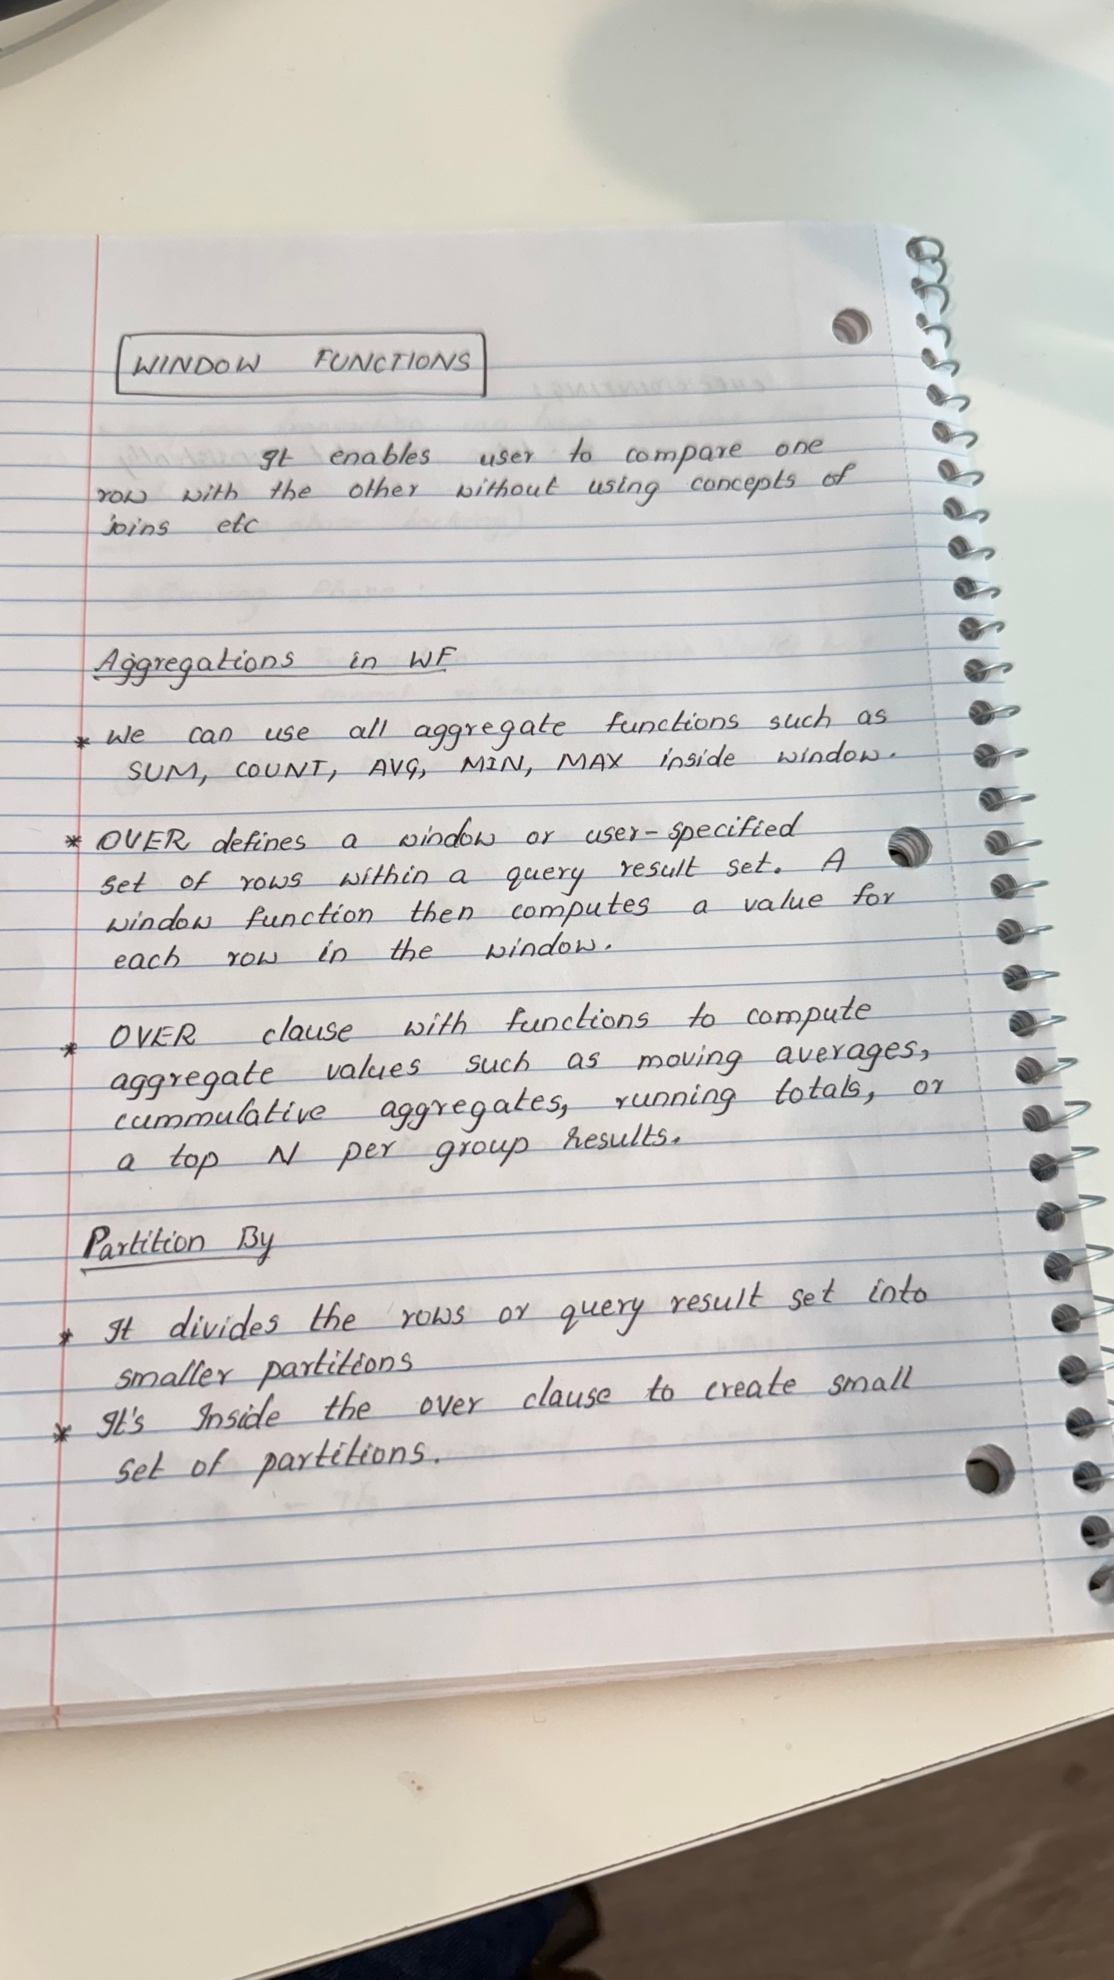 WINDOW FUNCTIONS
It enables user to compare one
row with the other without using concepts of
joins etc
Aggregations in WF
* We can use all aggregate functions such as
SUM, COUNT, AVG, MIN, MAX inside window.
* OVER defines a window or user-specified
set of rows within a query result set. A
window function then computes a value for
each row in the window.
* OVER clause with functions to compute
aggregate values such as moving averages,
cummulative aggregates, running totals, or
a top N per group results.
Partition By
* It divides the rows or query result set into
smaller partitions
* It's Inside the over clause to create small
set of partitions.